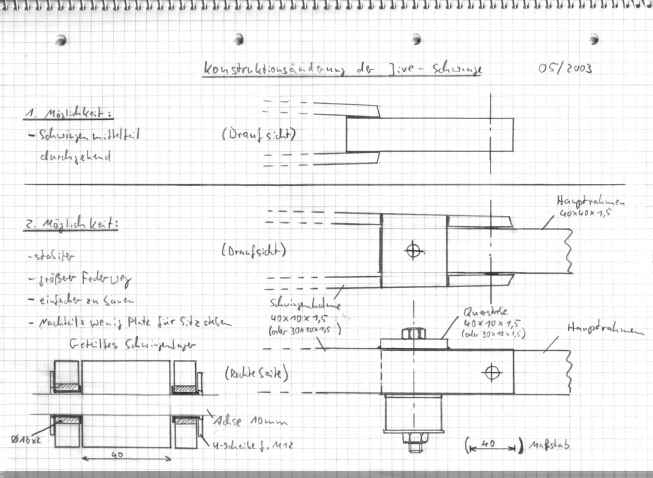 Konstruktionsänderung der Jive - Schwinge 05/2003
1. Möglichkeit:
- Schwingenmittelteil
durchgehend
(Draufsicht)
2. Möglichkeit:
- stabiler
- größerer Federweg
- einfacher zu bauen
- Nachteil: wenig Platz für Sitzstreben
(Draufsicht)
Hauptrahmen
40x40x1,5
Schwingenholme
40x10x1,5
(oder 30x10x1,5)
Querstrebe
40x10x1,5
(oder 30x10x1,5)
Hauptrahmen
Geteiltes Schwingenlager
(Rechte Seite)
Achse 10mm
U-Scheibe f. M12
40
(40) Maßstab